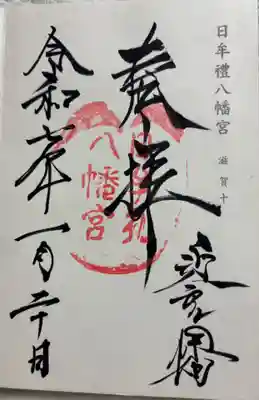 日牟禮八幡宮 滋賀十
奉拝
日牟礼
八幡宮
令和七年一月二十日